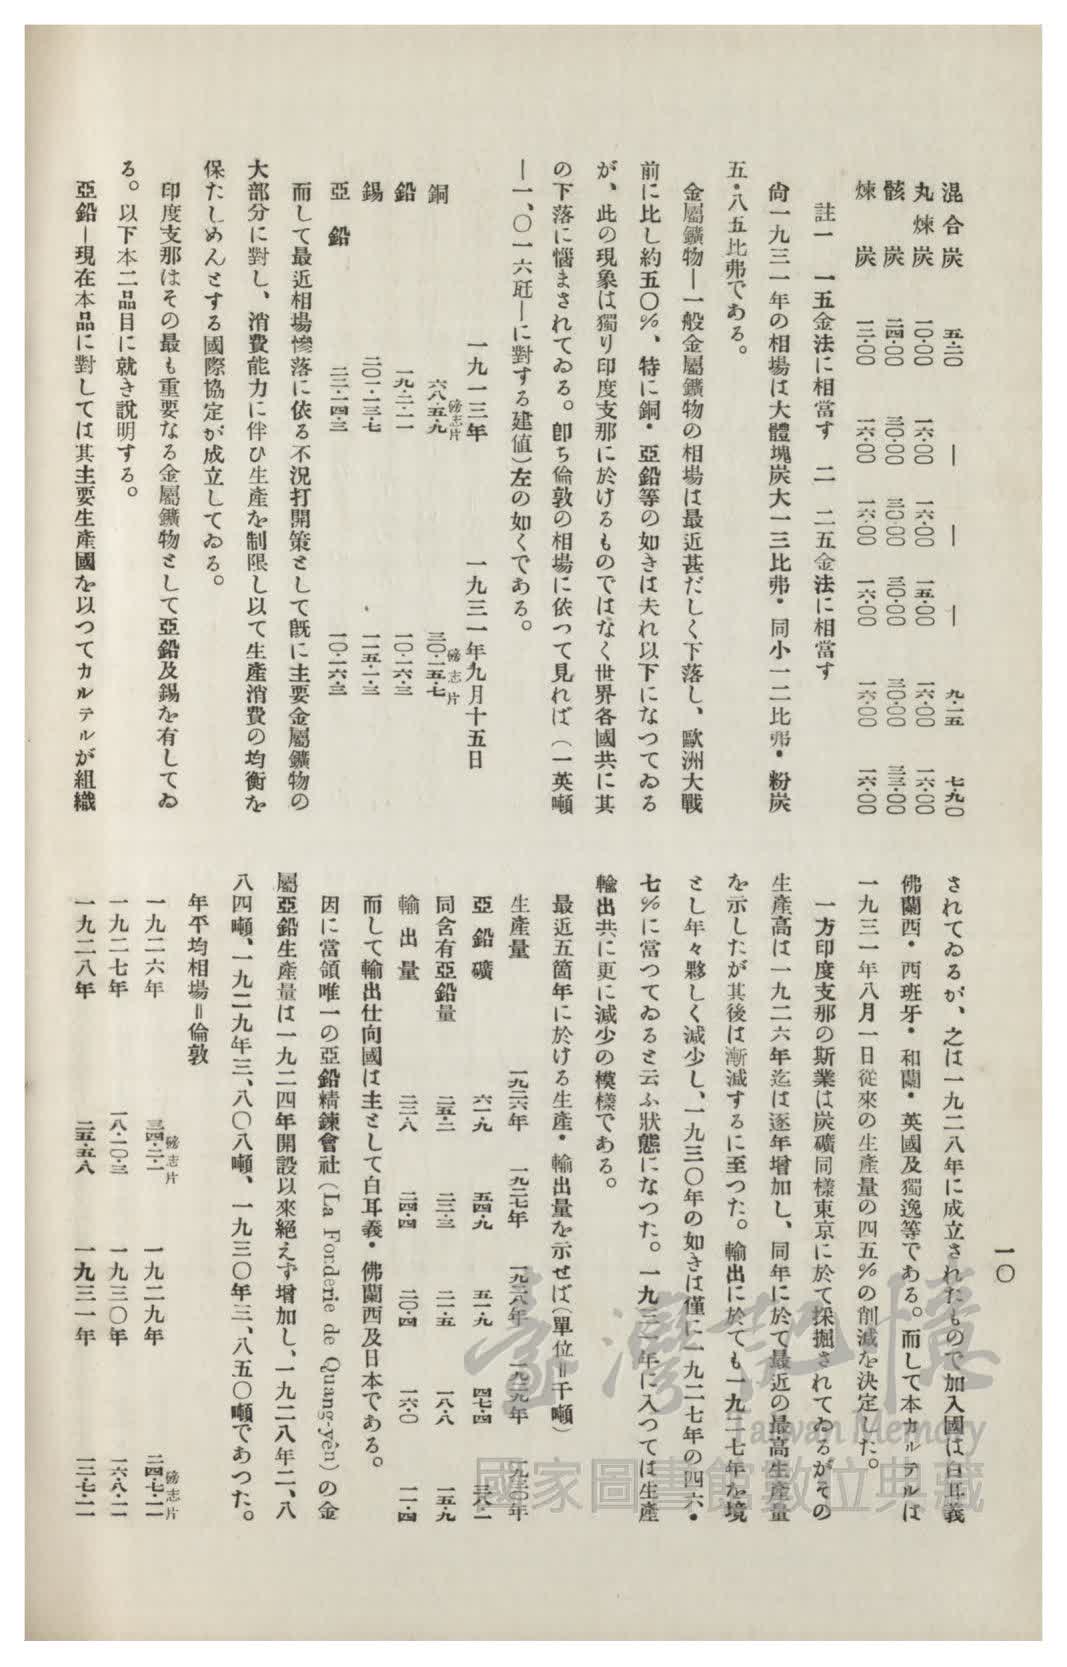 一〇
混合炭 五・二〇 ― ― ― 九・一五 七・九〇
丸煉炭 一〇・〇〇 一六・〇〇 一六・〇〇 一五・〇〇 一六・〇〇 一六・〇〇
骸炭 二四・〇〇 三〇・〇〇 三〇・〇〇 三〇・〇〇 三〇・〇〇 三三・〇〇
煉炭 一三・〇〇 一六・〇〇 一六・〇〇 一六・〇〇 一六・〇〇 一六・〇〇
註一 一五金法に相當す 二 二五金法に相當す
尙一九三一年の相場は大體塊炭大一三比弗・同小一二比弗・粉炭
五・八五比弗である。
金屬鑛物―一般金屬鑛物の相場は最近甚だしく下落し、歐洲大戰
前に比し約五〇%、特に銅・亞鉛等の如きは夫れ以下になつてゐる
が、此の現象は獨り印度支那に於けるものではなく世界各國共に其
の下落に惱まされてゐる。卽ち倫敦の相場に依つて見れば（一英噸
―一、〇一六瓩―に對する建値）左の如くである。
一九一三年 一九三一年九月十五日
磅志片 磅志片
銅 六八・五・九 三〇・一五・七
鉛 一九・二・一一 一〇・一六・三
錫 二〇一・一三・七 一一五・一・三
亞鉛 二三・一四・三 一〇・一六・三
而して最近相場慘落に依る不況打開策として旣に主要金屬鑛物の
大部分に對し、消費能力に伴ひ生產を制限し以て生產消費の均衡を
保たしめんとする國際協定が成立してゐる。
印度支那はその最も重要なる金屬鑛物として亞鉛及錫を有してゐ
る。以下本二品目に就き說明する。
亞鉛―現在本品に對しては其主要生產國を以つてカルテルが組織
されてゐるが、之は一九二八年に成立されたもので加入國は白耳義
佛蘭西・西班牙・和蘭・英國及獨逸等である。而して本カルテルは
一九三一年八月一日從來の生產量の四五%の削減を決定した。
一方印度支那の斯業は炭礦同樣東京に於て採掘されてゐるがその
生產高は一九二六年迄は逐年增加し、同年に於て最近の最高生產量
を示したが其後は漸減するに至つた。輸出に於ても一九二七年を境
とし年々夥しく減少し、一九三〇年の如きは僅に一九二七年の四六・
七%に當つてゐると云ふ狀態になつた。一九三一年に入つては生產
輸出共に更に減少の模樣である。
最近五箇年に於ける生產・輸出量を示せば（單位＝千噸）
生產量 一九二六年 一九二七年 一九二八年 一九二九年 一九三〇年
亞鉛礦 六一・九 五四・九 五一・九 四七・四 三八・二
同含有亞鉛量 二五・二 二二・三 二一・五 一八・八 一五・九
輸出量 二三・八 二四・四 二〇・四 一六・〇 一一・四
而して輸出仕向國は主として白耳義・佛蘭西及日本である。
因に當領唯一の亞鉛精鍊會社（La Forderie de Quang-yên）の金
屬亞鉛生產量は一九二四年開設以來絕えず增加し、一九二八年二、八
八四噸、一九二九年三、八〇八噸、一九三〇年三、八五〇噸であつた。
年平均相場＝倫敦
磅志片 磅志片
一九二六年 三四・二・二 一九二九年 二四・七・二
一九二七年 一八・一〇・三 一九三〇年 一六・八・二
一九二八年 二五・五・八 一九三一年 一二・七・二
臺灣記憶
Taiwan Memory
國家圖書館數位典藏